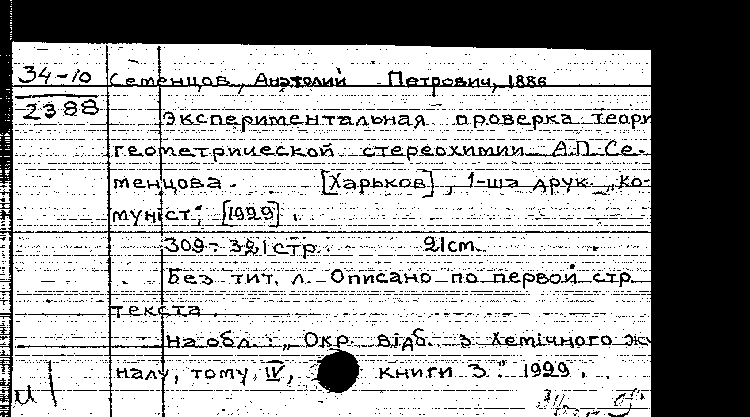 34-10 Семенцов, Анатолий Петрович, 1886
2388
Экспериментальная проверка теори
геометрической стереохимии А.П. Се-
менцова. [Харьков], 1-ша друк. „Ко-
муніст“, [1929].
309-321 стр. 21 см.
Без тит. л. Описано по первой стр.
текста.
На обл.: „Окр. відб. з Хемічного жу
налу, тому IV, книги 3.“ 1929.